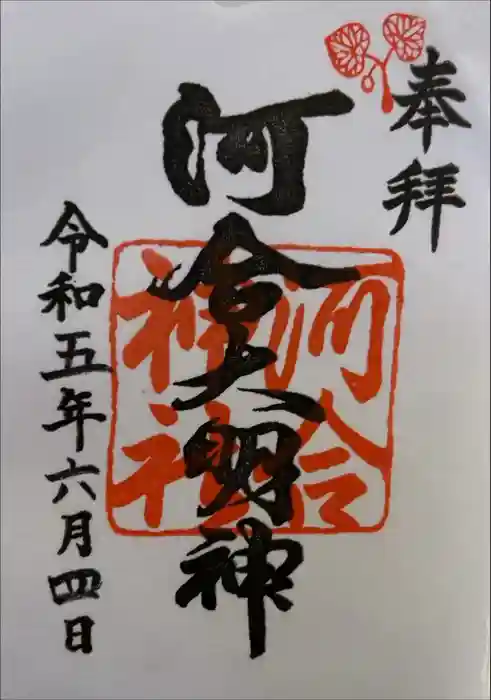 奉拝
河合大明神
河合
神社
令和五年六月四日